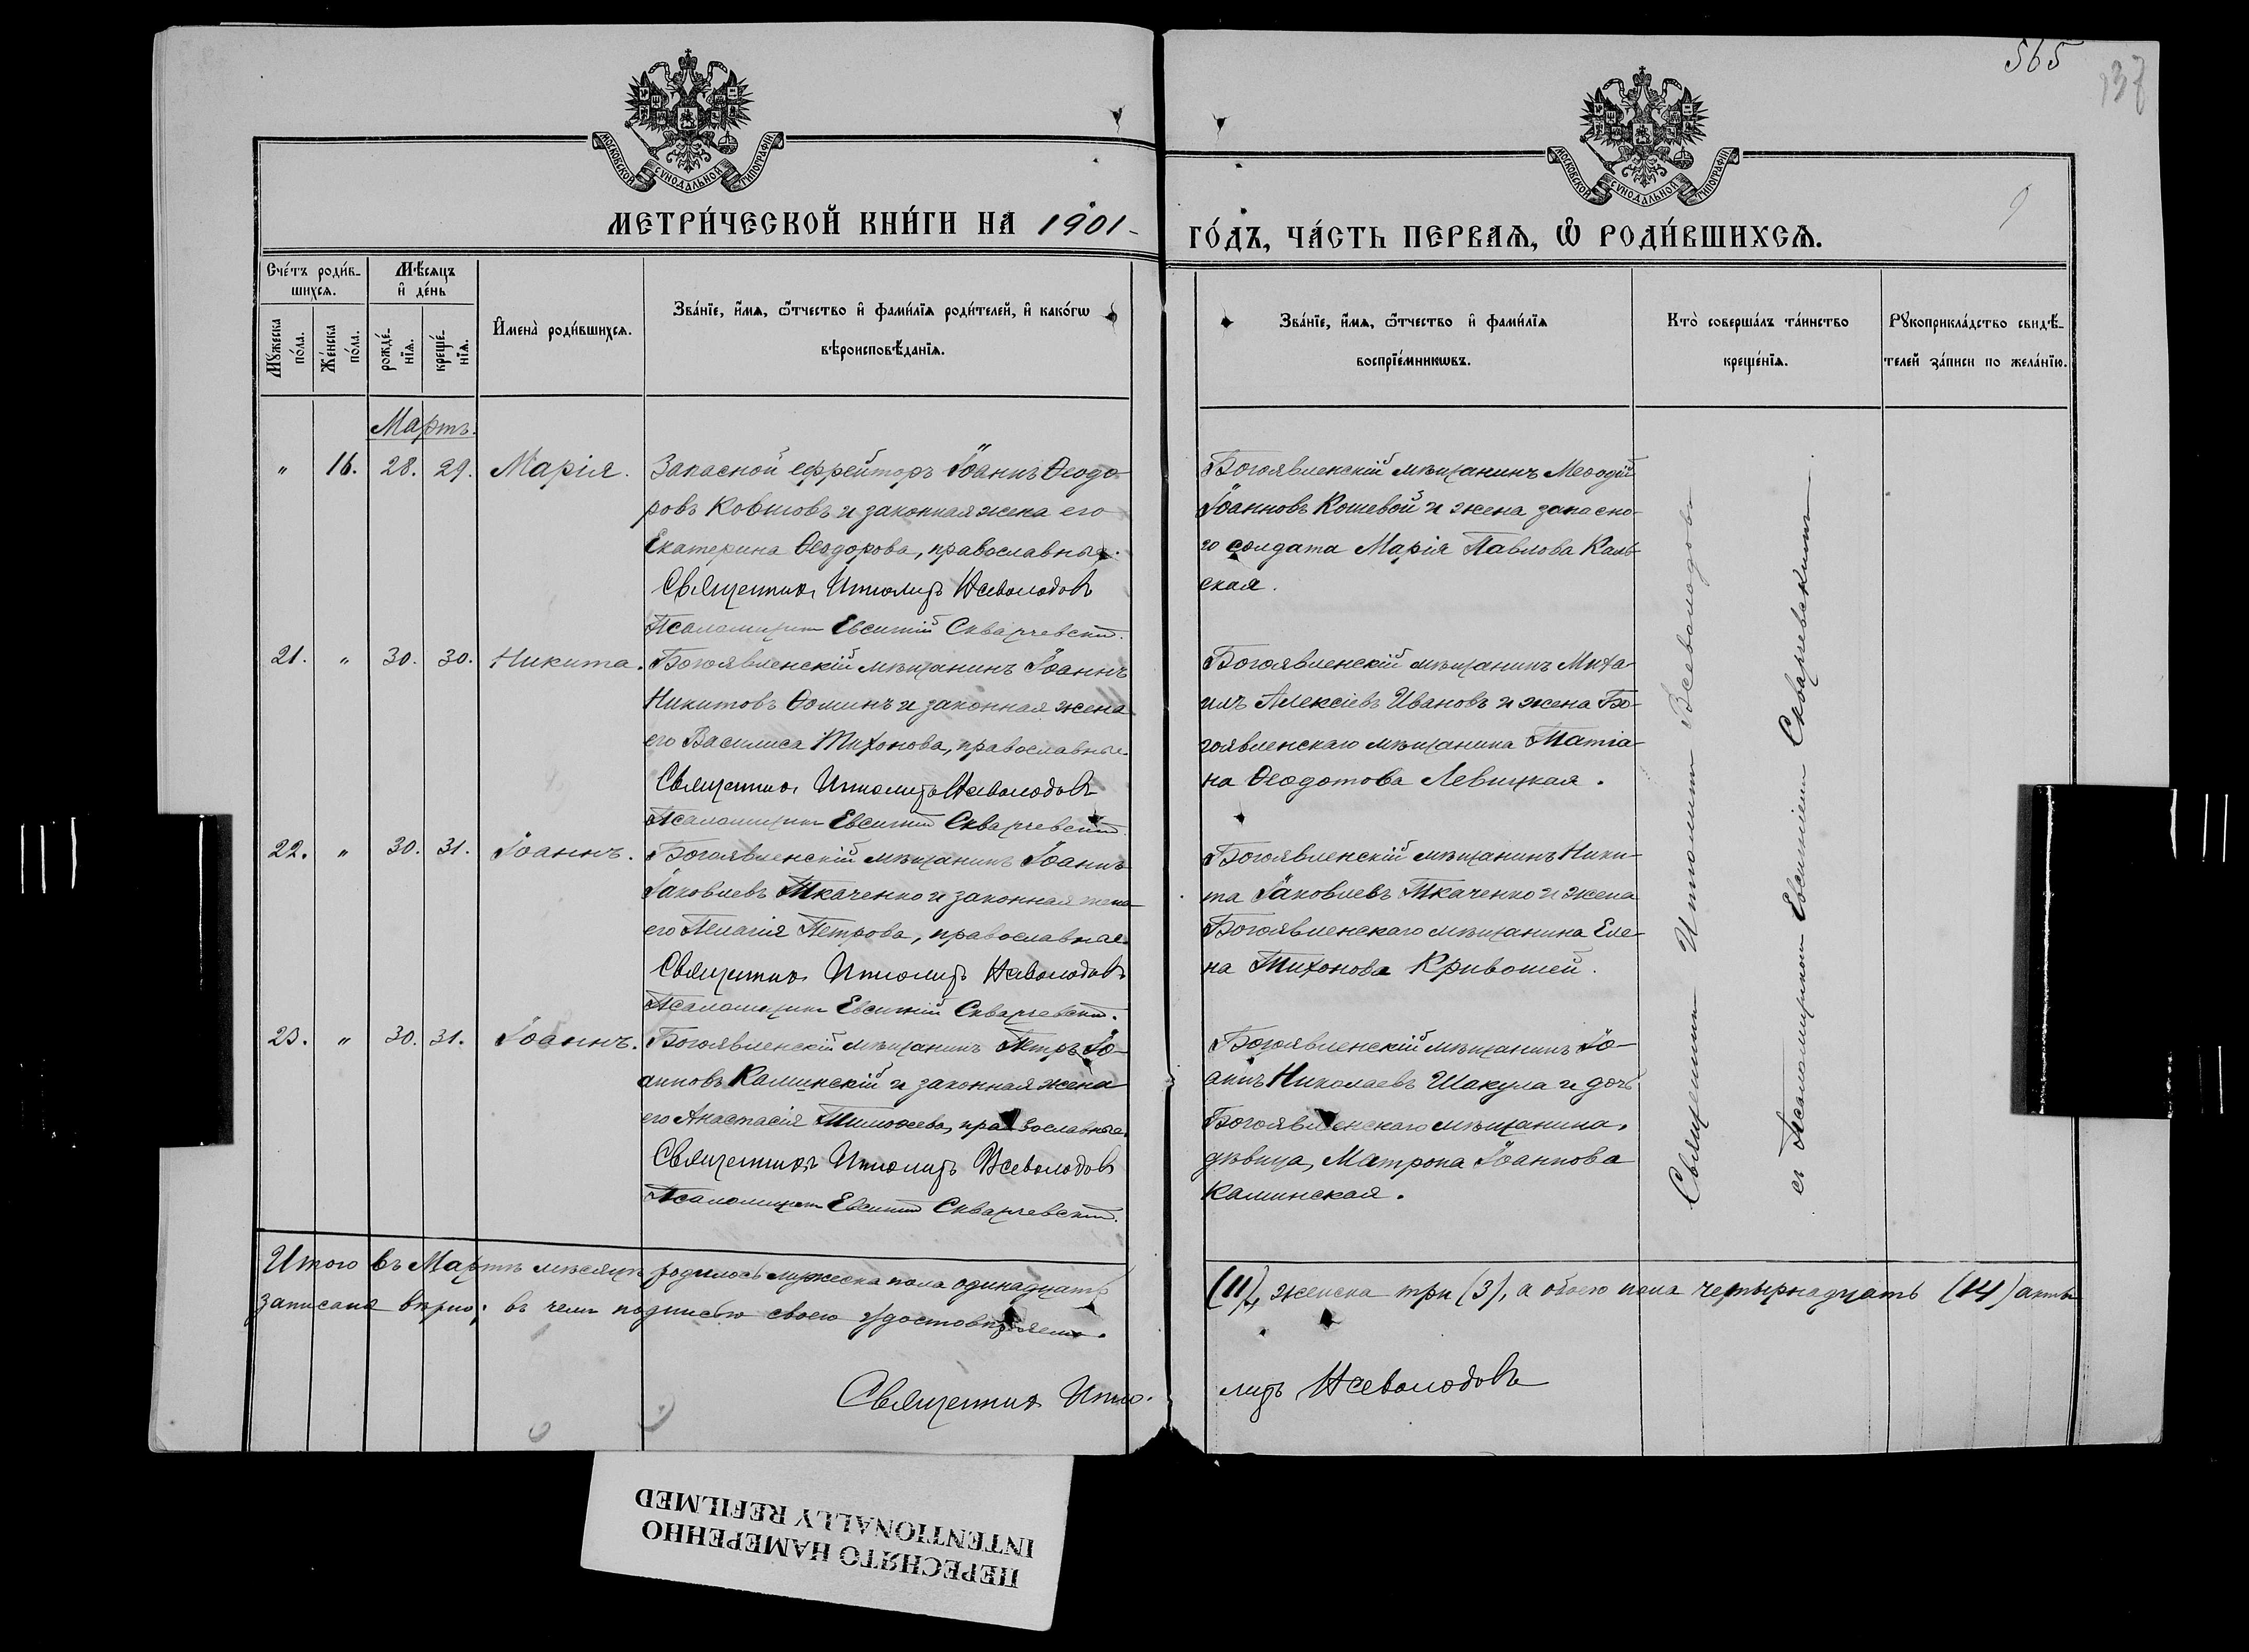 565
137
МОСКОВСКОЙ СУНОДАЛЬНОЙ ТИПОГРАФІИ
МОСКОВСКОЙ СУНОДАЛЬНОЙ ТИПОГРАФІИ
МЕТРИ́ЧЕСКОЙ КНИ́ГИ НА 1901
ГО́ДЪ, ЧА́СТЬ ПЕРВАѦ, Ѡ҆ РОДИ́ВШИХСѦ.
Сче́тъ роди́в-
шихсѧ.
Мꙋ́жеска по́ла.
Же́нска по́ла.
Мѣ́сѧцъ
и҆ де́нь
рожде́-нїѧ.
креще́-нїѧ.
И҆мена̀ роди́вшихсѧ.
Зва́нїе, и҆́мѧ, ѿтчество и҆ фами́лїѧ роди́телей, и҆ како́гѡ
вѣроисповѣ́данїѧ.
Зва́нїе, и҆́мѧ, ѿтчество и҆ фами́лїѧ
воспрїе́мникѡвъ.
Кто̀ соверша́лъ та́инство
креще́нїѧ.
Рꙋкоприкла́дство свидѣ́-
телей за́писи по жела́нїю.
Мартъ.
" 16. 28. 29. Марія.
Запасной ефрейторъ Іоаннъ Ѳеодо-
ровъ Ковшовъ и законная жена его
Екатерина Ѳеодорова, православные.
Священникъ Ипполитъ Всеволодовъ
Псаломщикъ Евсигній Скварчевскій.
Богоявленскій мѣщанинъ Меѳодій
Іоанновъ Кошевой и жена запасно-
го солдата Марія Павлова Каль-
ская.
21. " 30. 30. Никита.
Богоявленскій мѣщанинъ Іоаннъ
Никитовъ Ѳоминъ и законная жена
его Василиса Тихонова, православные
Священникъ Ипполитъ Всеволодовъ
Псаломщикъ Евсигній Скварчевскій
Богоявленскій мѣщанинъ Миха-
илъ Алексіевъ Ивановъ и жена Бо-
гоявленскаго мѣщанина Татіа-
на Ѳеодотова Левицкая.
22. " 30. 31. Іоаннъ.
Богоявленскій мѣщанинъ Іоаннъ
Іаковлевъ Ткаченко и законная жена
его Пелагія Петрова, православные
Священникъ Ипполитъ Всеволодовъ
Псаломщикъ Евсигній Скварчевскій.
Богоявленскій мѣщанинъ Ники-
та Іаковлевъ Ткаченко и жена
Богоявленскаго мѣщанина Еле-
на Тихонова Кривошей.
23. " 30. 31. Іоаннъ.
Богоявленскій мѣщанинъ Петръ Іо-
анновъ Калинскій и законная жена
его Анастасія Тимоѳеева, православные.
Священникъ Ипполитъ Всеволодовъ
Псаломщикъ Евсигній Скварчевскій.
Богоявленскій мѣщанинъ Іо-
аннъ Николаевъ Шакула и дочь
Богоявленскаго мѣщанина,
дѣвица, Матрона Іоаннова
Калинская.
Священникъ Ипполитъ Всеволодовъ
съ Псаломщикомъ Евсигніемъ Скварчевскимъ
Итого въ Мартѣ мѣсяцѣ родилось мужеска пола одинадцать
(11), женска три (3), а обоего пола четырнадцать (14) акты
записаны вѣрно; въ чемъ подписью своею удостовѣряемъ.
Священникъ Иппо-
литъ Всеволодовъ
ПЕРЕСНЯТО НАМЕРЕННО
INTENTIONALLY REFILMED